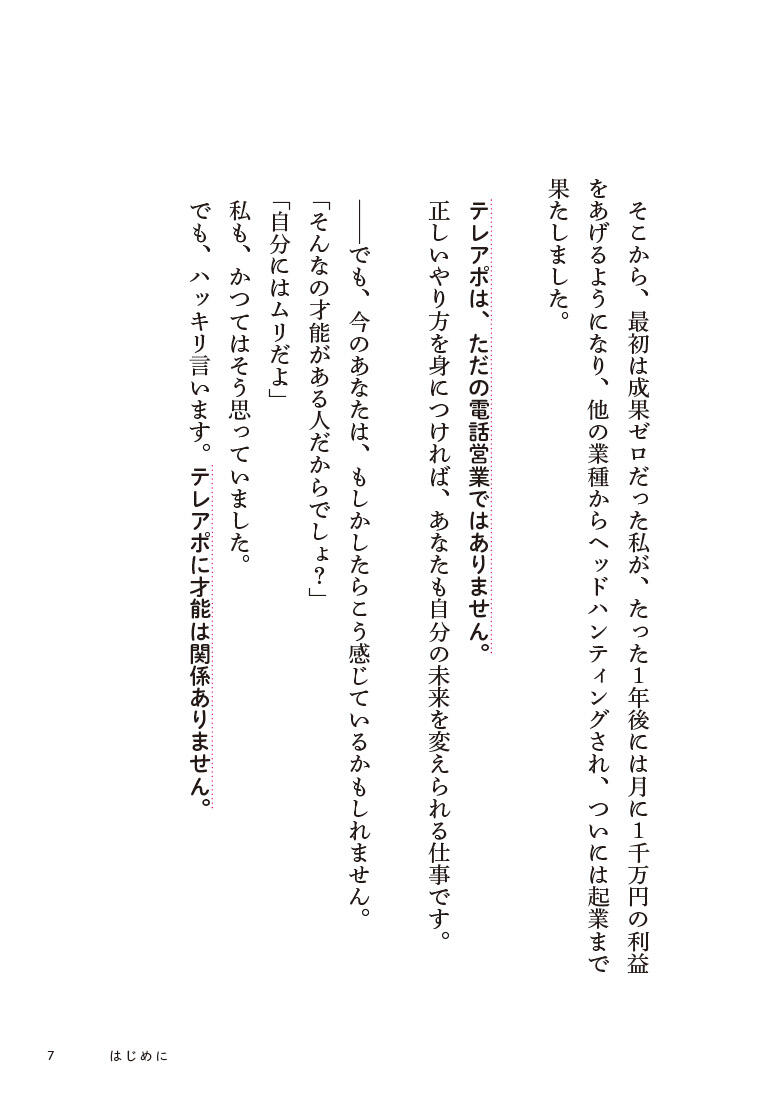 そこから、最初は成果ゼロだった私が、たった１年後には月に１千万円の利益
をあげるようになり、他の業種からヘッドハンティングされ、ついには起業まで
果たしました。
テレアポは、ただの電話営業ではありません。
正しいやり方を身につければ、あなたも自分の未来を変えられる仕事です。
――でも、今のあなたは、もしかしたらこう感じているかもしれません。
「そんなの才能がある人だからでしょ？」
「自分にはムリだよ」
私も、かつてはそう思っていました。
でも、ハッキリ言います。テレアポに才能は関係ありません。
7 はじめに